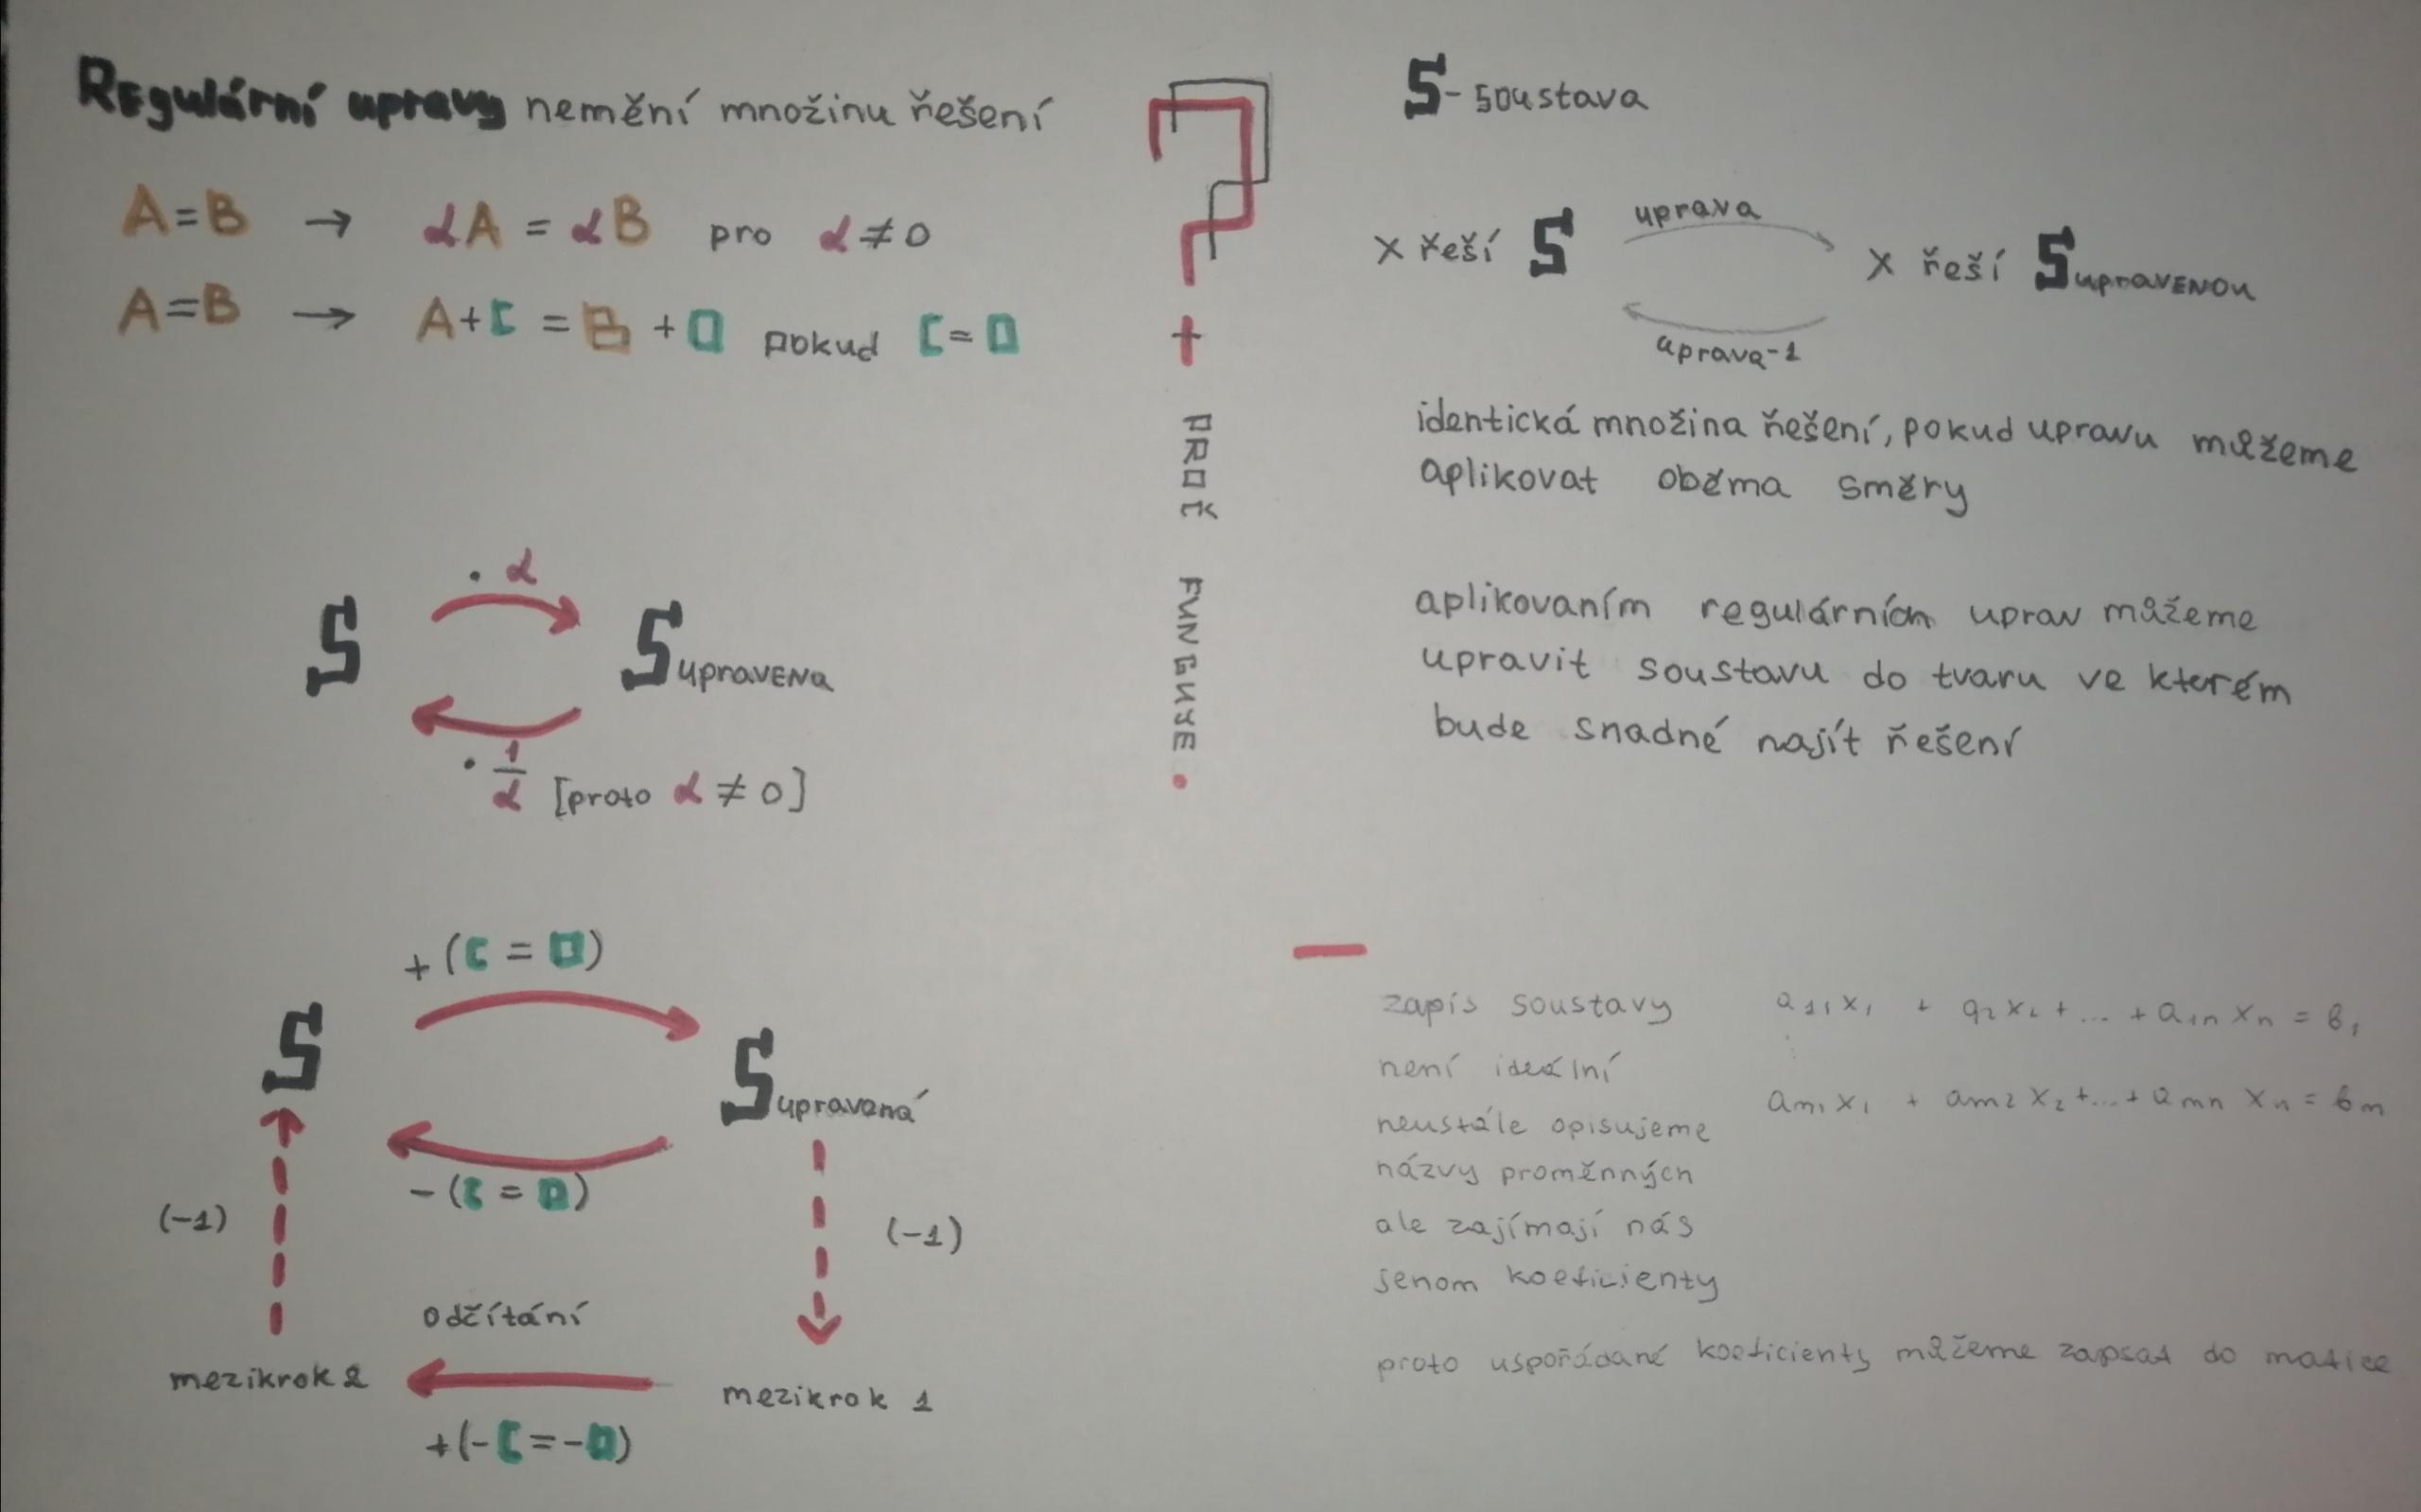 Regulární upravy nemění množinu řešení
A=B → αA = αB pro α≠0
A=B → A+C = B+D pokud C=D
· α
S
Supravena
· 1/α [proto α ≠ 0]
+(C = D)
S
Supravená
-(C = D)
(-1)
(-1)
odčítání
mezikrok 2
mezikrok 1
+(-C=-D)
?
+
PROČ FUNGUJE.
S- soustava
uprava
x řeší S
x řeší SupravENOU
uprava-1
identická množina řešení, pokud upravu můžeme
aplikovat oběma směry
aplikovaním regulárních uprav můžeme
upravit soustavu do tvaru ve kterém
bude snadné najít řešení
—
zapís soustavy a11x1 + a2x2 + ... + a1n xn = b1
není ideální
am1x1 + am2x2 +...+ amn xn = bm
neustále opisujeme
názvy proměnných
ale zajímají nás
jenom koeficienty
proto uspořádané koeficienty můžeme zapsat do matice